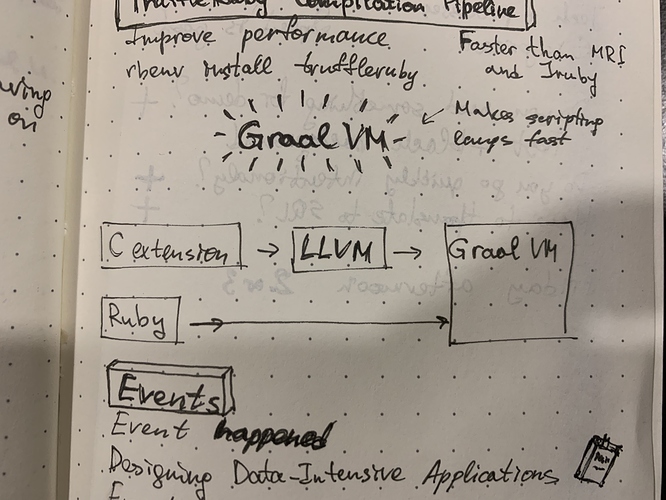 TruffleRuby Compilation Pipeline
Improve performance
Faster than MRI
and Jruby
rbenv install truffleruby
Graal VM
Makes scripting
langs fast
C extension
LLVM
Graal VM
Ruby
Events
Event happened
Designing Data-Intensive Applications
on